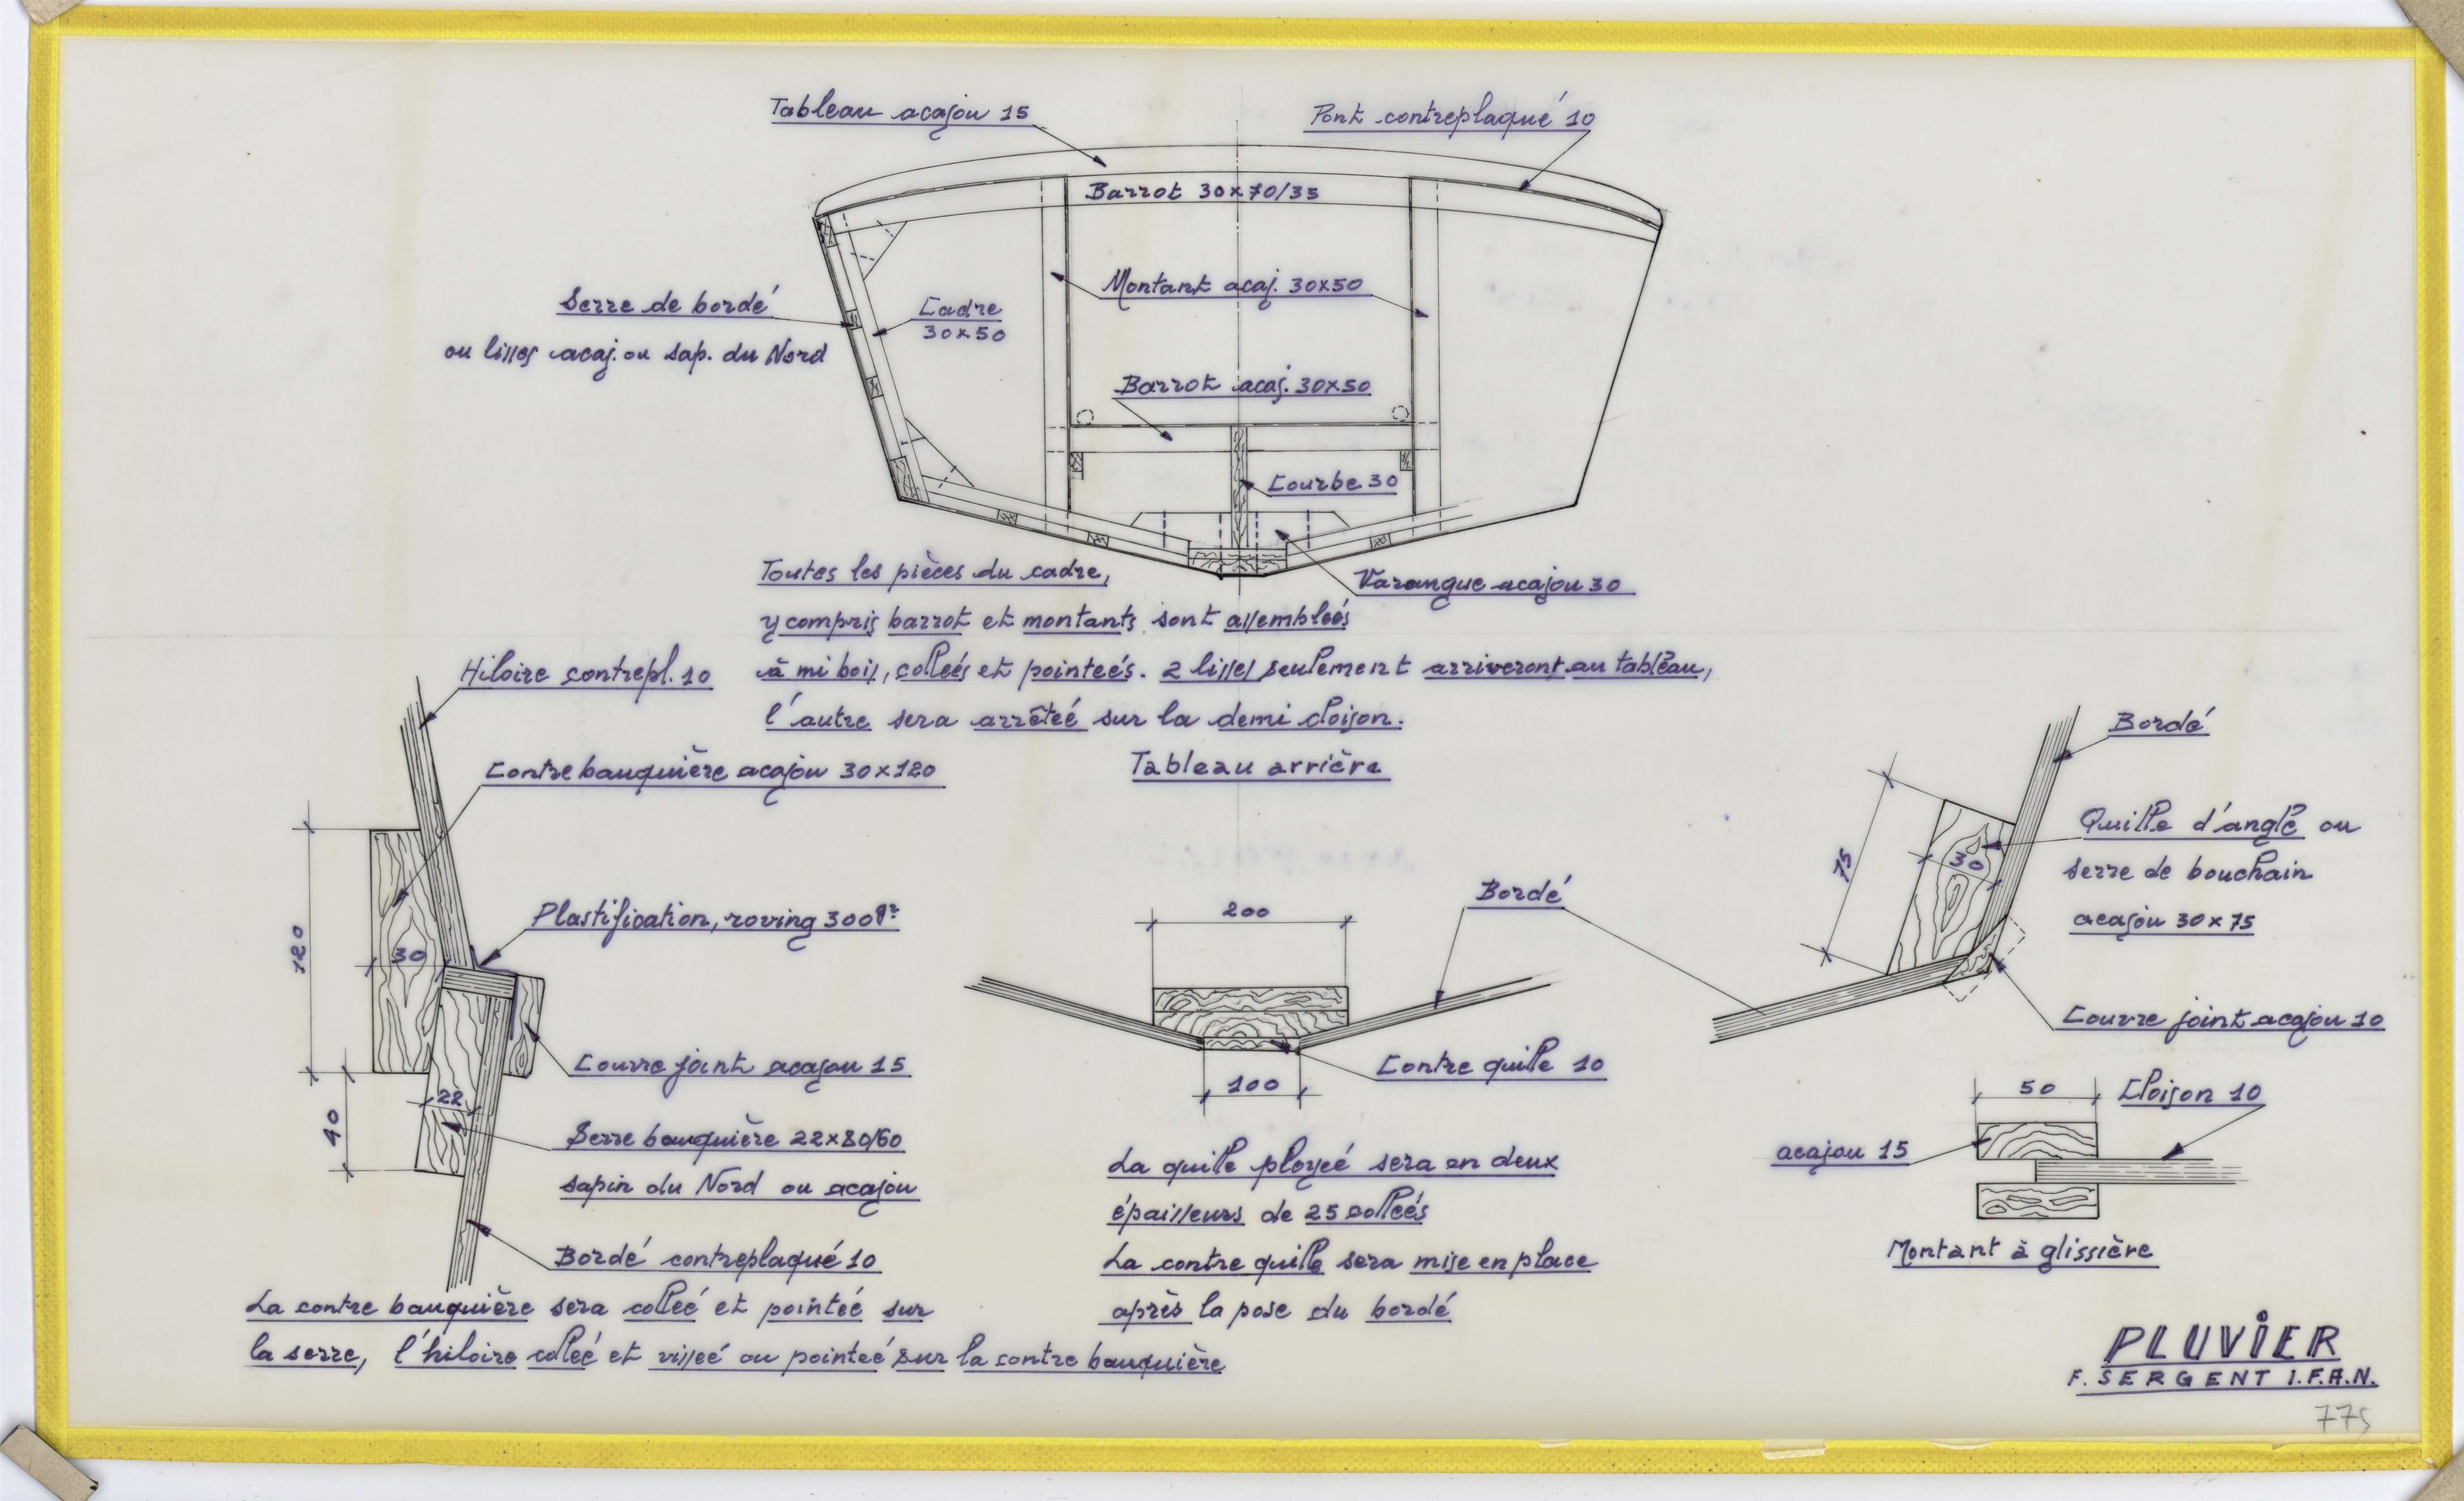 Tableau acajou 15
Pont contreplaqué 10
Barrot 30x70/35
Montant acaj. 30x50
Serre de bordé
ou lisses acaj. ou sap. du Nord
Cadre
30x50
Barrot acaj. 30x50
Courbe 30
Varangue acajou 30
Toutes les pièces du cadre,
y compris barrot et montants sont assembleés
à mi bois, colleés et pointeés. 2 lisses seulement arriveront au tableau,
l'autre sera arrêteé sur la demi cloison.
Tableau arrière
Hiloire contrepl. 10
Contre bauquière acajou 30x120
120
30
Plastification, roving 300gr
Couvre joint acajou 15
40
22
Serre bauquière 22x80/60
sapin du Nord ou acajou
Bordé contreplaqué 10
La contre bauquière sera colleé et pointeé sur
la serre, l'hiloire colleé et visseé ou pointeé sur la contre bauquière
200
Bordé
Contre quille 10
100
La quille ployeé sera en deux
épaisseurs de 25 colleés
La contre quille sera mise en place
après la pose du bordé
Bordé
75
30
Quille d'angle ou
serre de bouchain
acajou 30x75
Couvre joint acajou 10
50
Cloison 10
acajou 15
Montant à glissière
PLUVIER
F. SERGENT I.F.A.N.
775